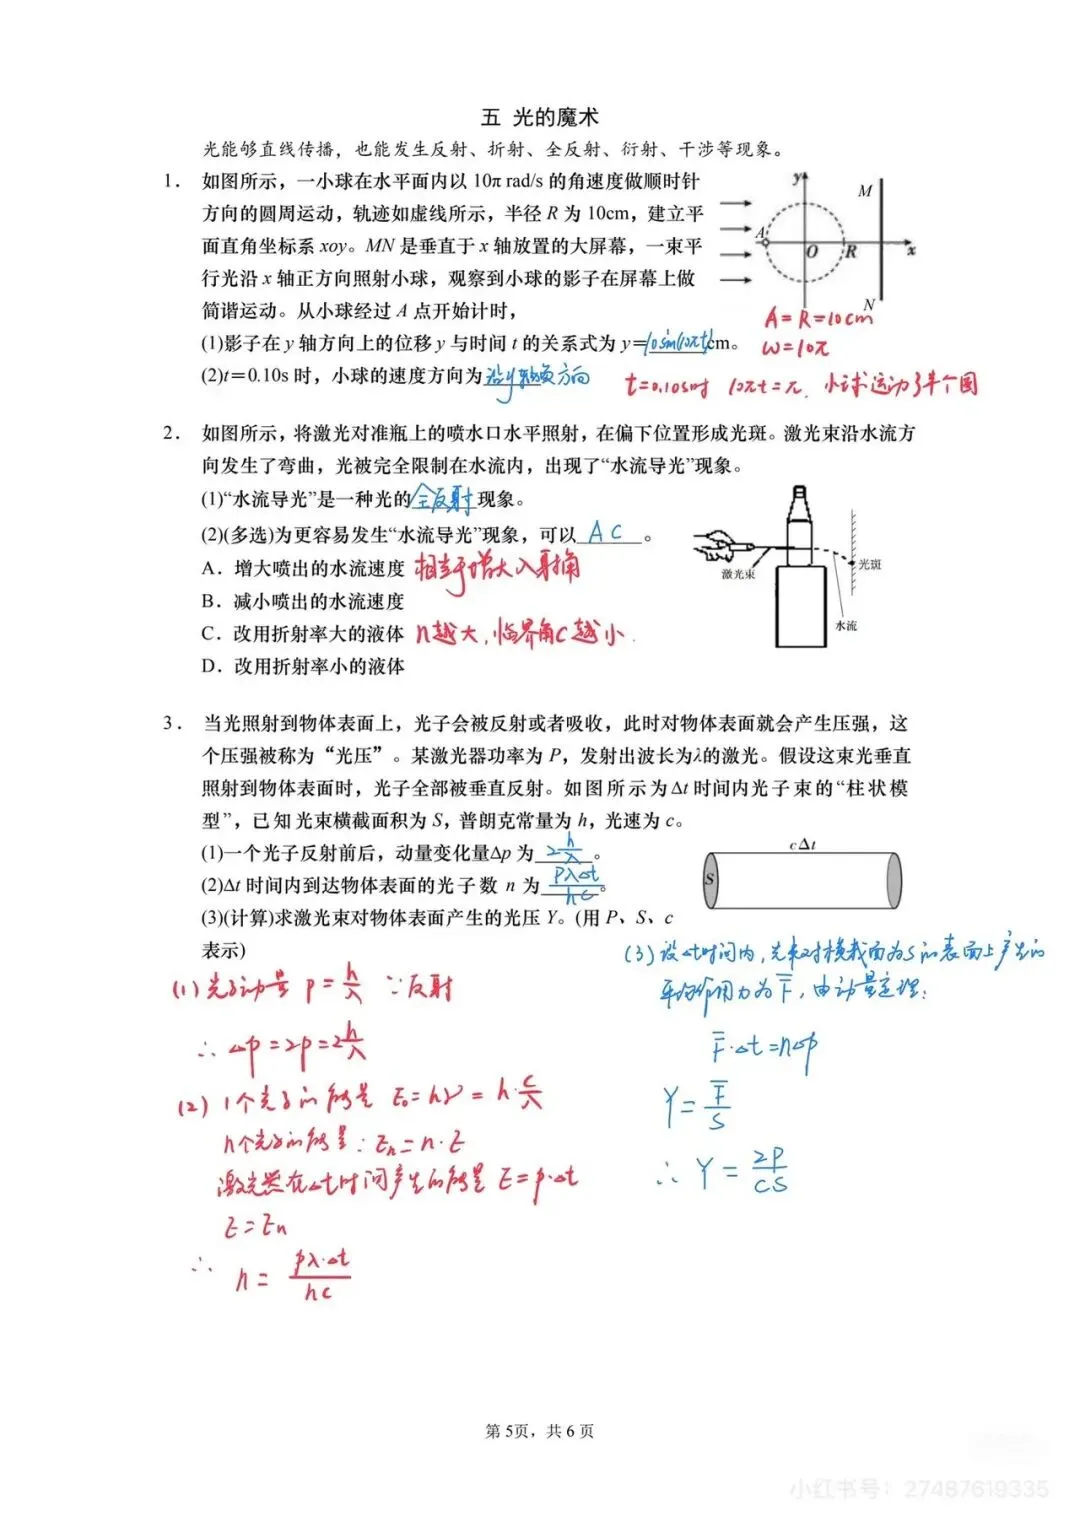 五 光的魔术
光能够直线传播，也能发生反射、折射、全反射、衍射、干涉等现象。
1． 如图所示，一小球在水平面内以 10π rad/s 的角速度做顺时针
方向的圆周运动，轨迹如虚线所示，半径 R 为 10cm，建立平
面直角坐标系 xoy。MN 是垂直于 x 轴放置的大屏幕，一束平
行光沿 x 轴正方向照射小球，观察到小球的影子在屏幕上做
简谐运动。从小球经过 A 点开始计时，
y
M
A
O
R
x
N
A = R = 10cm
(1)影子在 y 轴方向上的位移 y 与时间 t 的关系式为 y=10sin(10πt)cm。
ω=10π
(2)t＝0.10s 时，小球的速度方向为沿y轴负方向
t=0.10s时 10πt=π，小球运动了半个圆
2． 如图所示，将激光对准瓶上的喷水口水平照射，在偏下位置形成光斑。激光束沿水流方
向发生了弯曲，光被完全限制在水流内，出现了“水流导光”现象。
(1)“水流导光”是一种光的全反射现象。
(2)(多选)为更容易发生“水流导光”现象，可以 A C 。
A．增大喷出的水流速度 相当于增大入射角
B．减小喷出的水流速度
C．改用折射率大的液体 n越大，临界角C越小．
D．改用折射率小的液体
激光束
光斑
水流
3． 当光照射到物体表面上，光子会被反射或者吸收，此时对物体表面就会产生压强，这
个压强被称为“光压”。某激光器功率为 P，发射出波长为λ的激光。假设这束光垂直
照射到物体表面时，光子全部被垂直反射。如图所示为Δt 时间内光子束的“柱状模
型”，已知光束横截面积为 S，普朗克常量为 h，光速为 c。
(1)一个光子反射前后，动量变化量Δp 为 2h/λ 。
(2)Δt 时间内到达物体表面的光子数 n 为 Pλ·Δt/hc 。
(3)(计算)求激光束对物体表面产生的光压 Y。(用 P、S、c
表示)
cΔt
S
(1) 光子动量 p = h/λ ∵反射
∴ Δp = 2p = 2h/λ
(2) 1个光子的能量 E₀ = hν = h·c/λ
n个光子的能量：Eₙ = n·E
激光器在Δt时间产生的能量 E = p·Δt
E = Eₙ
∴ n = pλ·Δt/hc
(3) 设Δt时间内，光束对横截面为S的表面上产生的
平均作用力为 F̄，由动量定理：
F̄·Δt = nΔp
Y = F̄/S
∴ Y = 2P/cS
第 5页，共 6 页
小红书号：27487619335